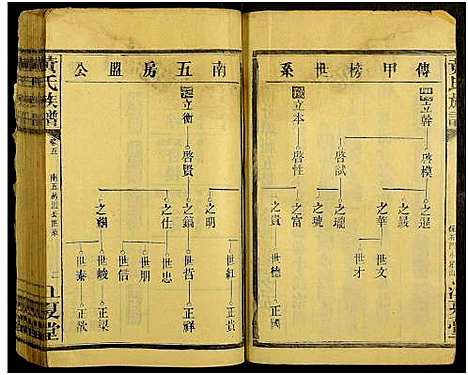 傳甲榜世系
立幹
啓模
之暹
之嚴
之華
世文
世才
啓試
之瓏
之琥
立本
啓性
之富
之貴
世德
正國
南五房盟公
立衡
啓賢
之明
世紅
正貴
之鎬
世哲
正祥
之仕
世忠
世朋
世信
之翱
世峻
正渠
世泰
正欽
黃氏族譜
卷五
二
江夏堂
黃氏族譜
江夏堂